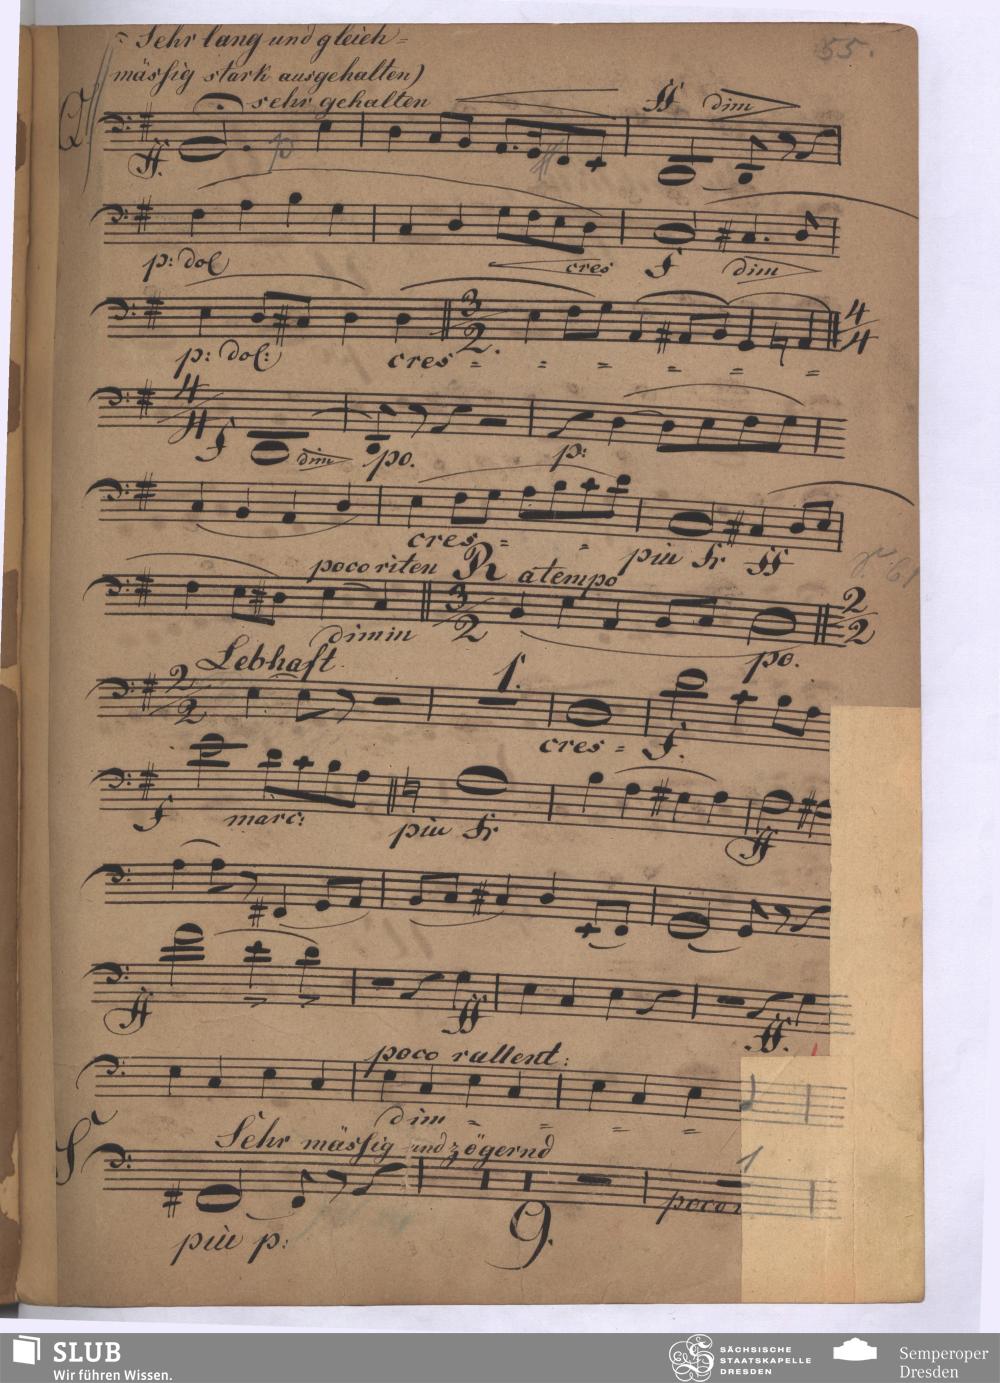 55.
Sehr lang und gleich=
mässig stark ausgehalten)
sehr gehalten
ff dim
ff. p
p: dol cres f dim
3
2. 4
4
p: dol: cres = = = = = =
4
4 f dim po. p:
cres = = piu fr ff
poco riten R a tempo
3
2 2
2
dimin po.
Lebhaft 1.
2
2
cres = f.
f marc: piu fr ff
ff ff ff.
poco rallent:
dim = = = =
Sehr mässig und zögernd 1
poco
piu p: 9.
SLUB
Wir führen Wissen.
SÄCHSISCHE
STAATSKAPELLE
DRESDEN
Semperoper
Dresden